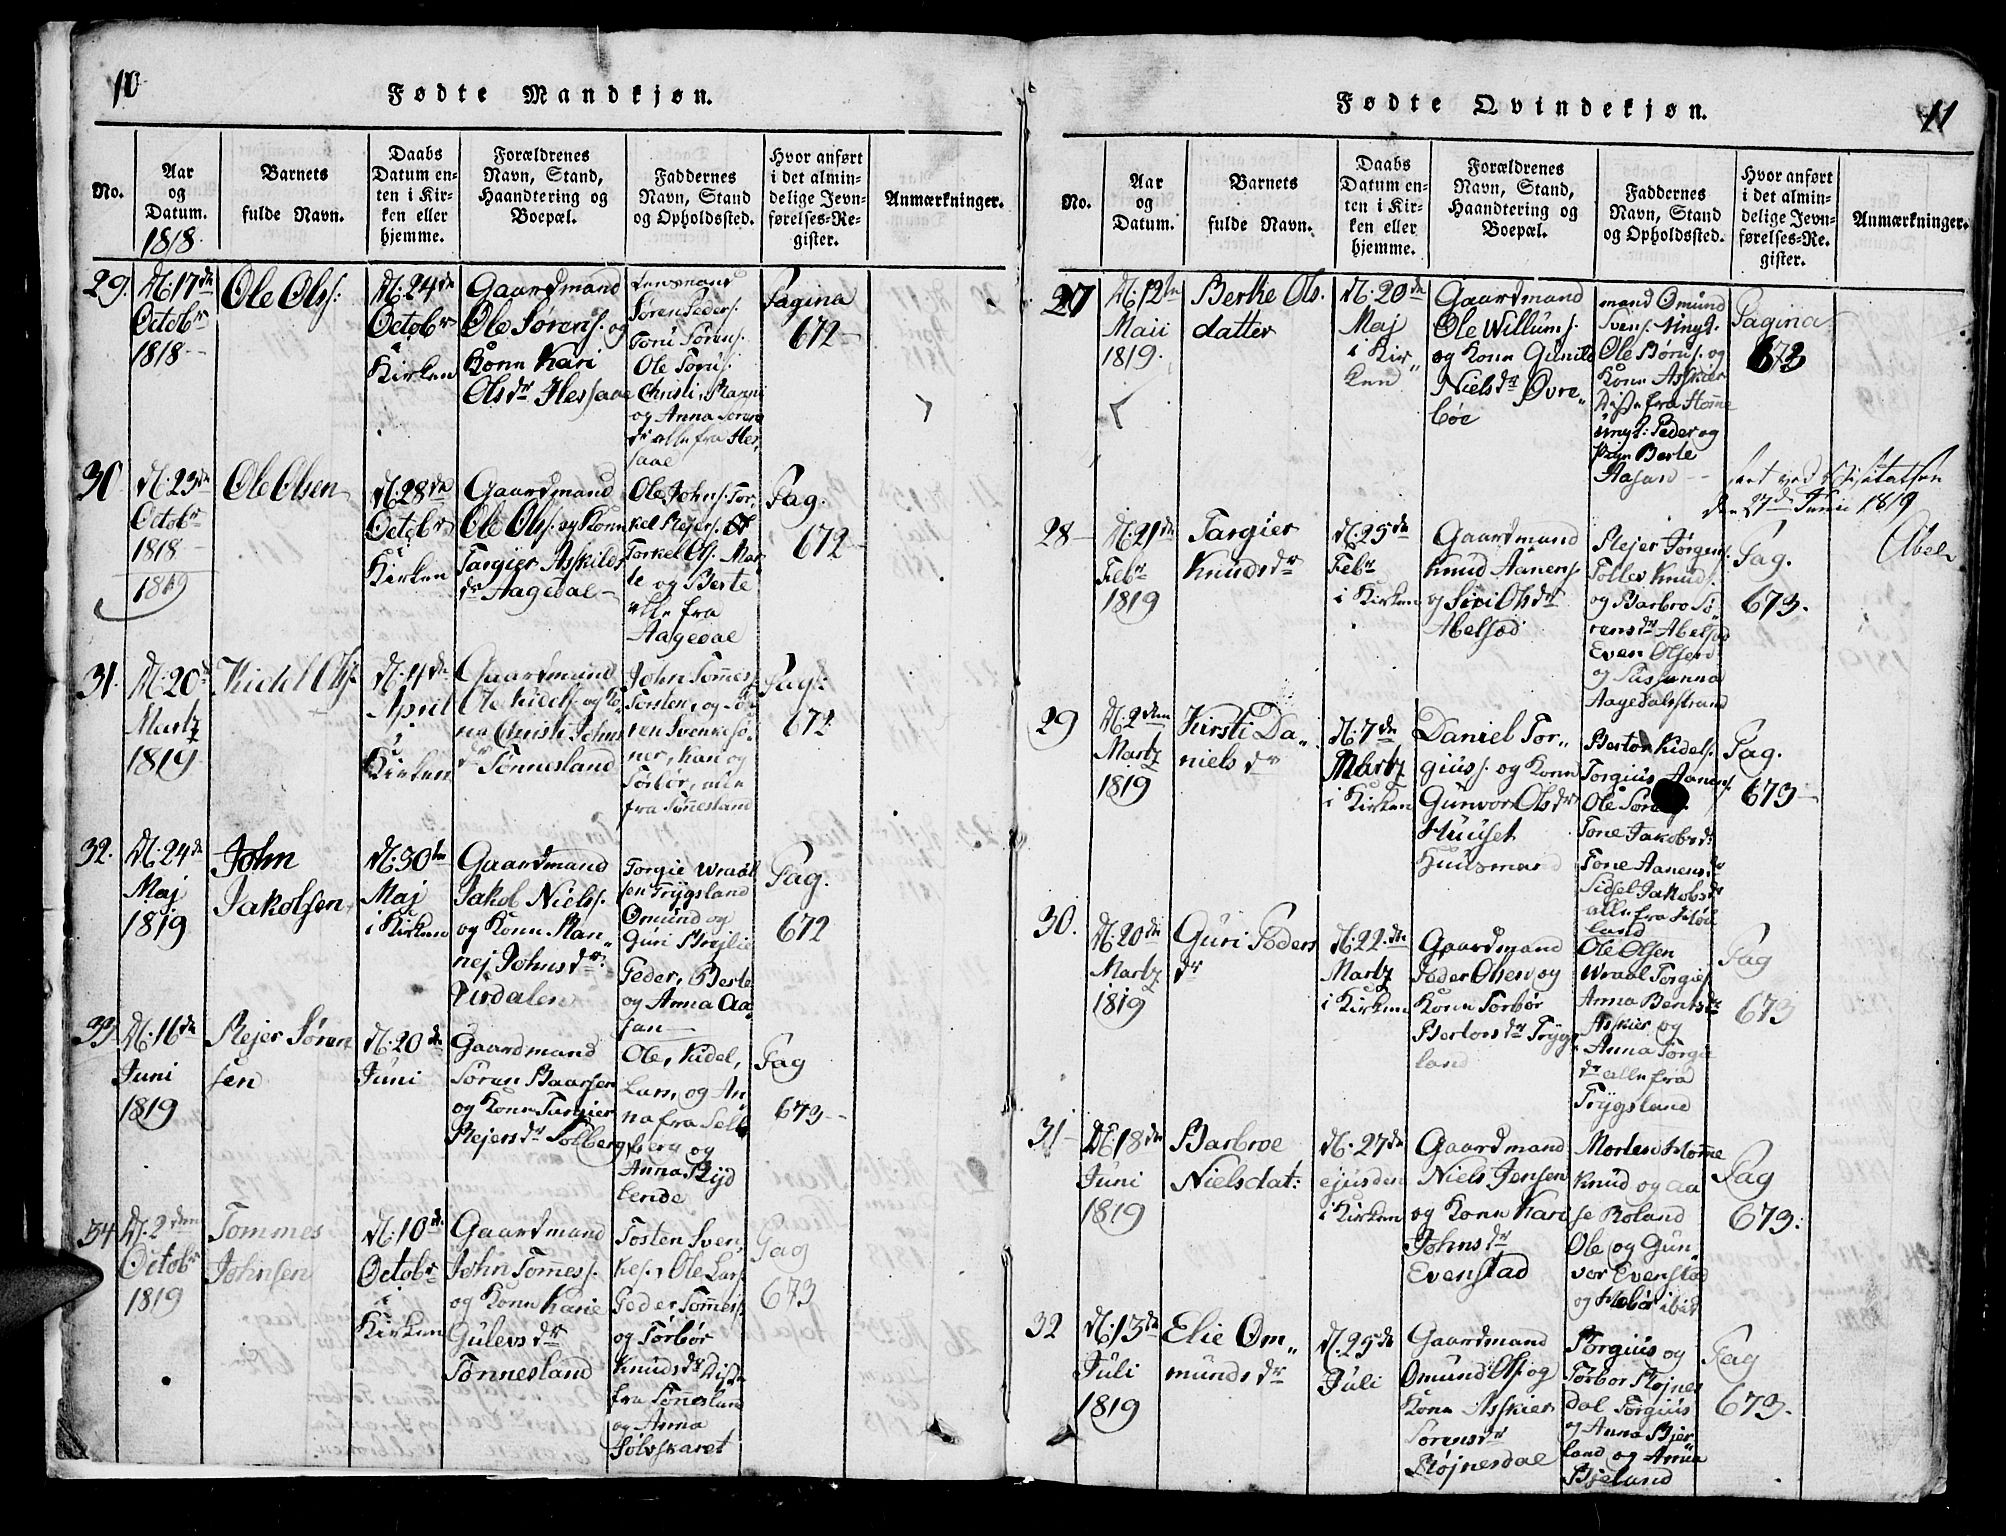 10
Fødte Mandkjøn.
No.
Aar
og
Datum.
1818.
Barnets
fulde Navn.
Daabs
Datum en-
ten i Kir-
ken eller
hjemme.
Forældrenes
Navn, Stand,
Haandtering og
Boepæl.
Faddernes
Navn, Stand
og Opholdssted.
Hvor anført
i det almin-
delige Jevn-
førelses-Re-
gister.
Anmærkninger.
29.
D. 17de
Octobr
1818
Ole Ols:
D. 24de
Octobr
i
Kirken
Gaardmand
Ole Sørens. og
Kone Kari
Olsdr Hessaae
Lensmand
Søren Peders.
Toni Sørens.
Ole Sørens.
Christi,
og Anna Sørens
dr alle fra Hes
saae
Pagina
672
30
D. 23de
Octobr
1818
1819
Ole Olsen
D. 28de
Octobr
i
Kirken
Gaardmand
Ole Ols. og Kone
Targier Askilds
dr Aagedal
Ole Johns. Tor
kel Rejers.
Torkel Ols. Mar
te og Berte
alle fra
Aagedal
Pag.
672
31.
D. 20de
Martz
1819
Kidel Ols.
D. 4de
April
i
Kirken
Gaardmand
Ole Kidels. og Ko
ne Christi Johns
dr Tønnesland
John Tommes.
Torsten, og Sø
ren Svenkesø
ner, Kari og
Torbør, alle
fra Tønnesland
Pag:
672
32.
D. 24de
Maj
1819
John
Jakobsen
D. 30te
Maj
i Kirken
Gaardmand
Jakob Niels.
og Kone Ran
nej Johnsdr.
Virdalen
Torgie Wraal
sen Trygsland
Omund og
Guri
Peder, Berte
og Anna Aa
san
Pag.
672
33.
D. 16de
Juni
1819
Rejer Søren
sen
D. 20de
Juni
Gaardmand
Søren Baarsen
og Kone Targier
Rejersdr Solberg
Ole, Kidel,
Lars, og An
na fra Sol
berg og
Anna Ryd
lende
Pag
673
34
D. 2den
Octobr
1819
Tommes
Johnsen
D. 10de
Octobr
i
Kirken
Gaardmand
John Tommes.
og Kone Karie
Gulevsdr
Tønnesland
Tosten Sven
kes., Ole Lars.
Peder Tommes.
og Torbør
Knudsdr Disse
fra Tønnesland
og Anna
Sølvskaret
Pag
673
11
Fødte Qvindekjøn.
No.
Aar
og
Datum.
Barnets
fulde Navn.
Daabs
Datum en-
ten i Kir-
ken eller
hjemme.
Forældrenes
Navn, Stand,
Haandtering og
Boepæl.
Faddernes
Navn, Stand
og Opholdssted.
Hvor anført
i det almin-
delige Jevn-
førelses-Re-
gister.
Anmærkninger.
27
D. 12te
Maii
1819.
Berthe Ols.
datter
D. 20de
Maj
i Kir
ken
Gaardmand
Ole Willums.
og Kone Gunild
Nielsdr Øvre
bøe
mand Omund
Svens. Ungk.
Ole Børus. og
Kone Askier
Disse fra Homme
Ungk: Peder og
Pige Berte
Aasan
Pagina
673
ved Visitatsen
den 27de Junii 1819
Abel
28
D. 21de
Febr
1819
Targier
Knudsdr
D. 25de
Febr
i Kirken
Gaardmand
Knud Aanens.
og Siri Olsdr
Abelsæd
Rejer Jørgens.
Tollev Knuds.
og Barbro Sø
rensdr Abelsæd
Even Olsen
og Susanna
Aagedalsstrand
Pag.
673.
29
D. 2den
Martz
1819
Kirsti Da
niels dr
D. 7de
Martz
i Kirken
Daniel Tor
gius. og Kone
Gunvor Olsdr
Huuset
Huusmand
Berton Kidels.
Torgius Aanens.
Ole
Tone Jakobsdr
Tone Aanensdr
Sidsel Jakobsdr
alle fra
land
Pag.
673
30.
D. 20de
Martz
1819
Guri Peders
dr
D. 22de
Martz
i Kirken
Gaardmand
Peder Olsen og
Kone Torbør
Bertonsdr Trygs
land
Ole Olsen
Wraal Torgius.
Anna Berntsdr
Askier og
Anna Torgie
dr alle fra
Trygsland
Pag
673
31
D. 18de
Juni
1819
Barbroe
Nielsdat:
D. 27de
ejusden
i Kirken
Gaardmand
Niels Jensen
og Kone Kari
Johnsdr
Evenstad
Morten Homme
Knud og Aa
se Roland
Ole og Gun
vor Evenstad
og ibid
Pag
673.
32
D. 13de
Juli
1819
Elie Om
munds dr
D. 25de
Juli
Gaardmand
Omund Ols. og
Kone Askier
Sørensdr
Røjnesdal
Torgius og
Torbor Røjnes
dal Torgius
og Anna Bjer
land og Anna
Bjeland
Pag
673.